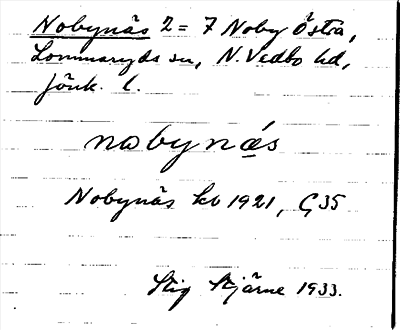 Nobynäs 2 = 7 Noby Östra,
Lommaryds sn, N. Vedbo hd,
Jönk. l.
nobynä́s
Nobynäs kb 1921, G35
Stig Stjärne 1933.